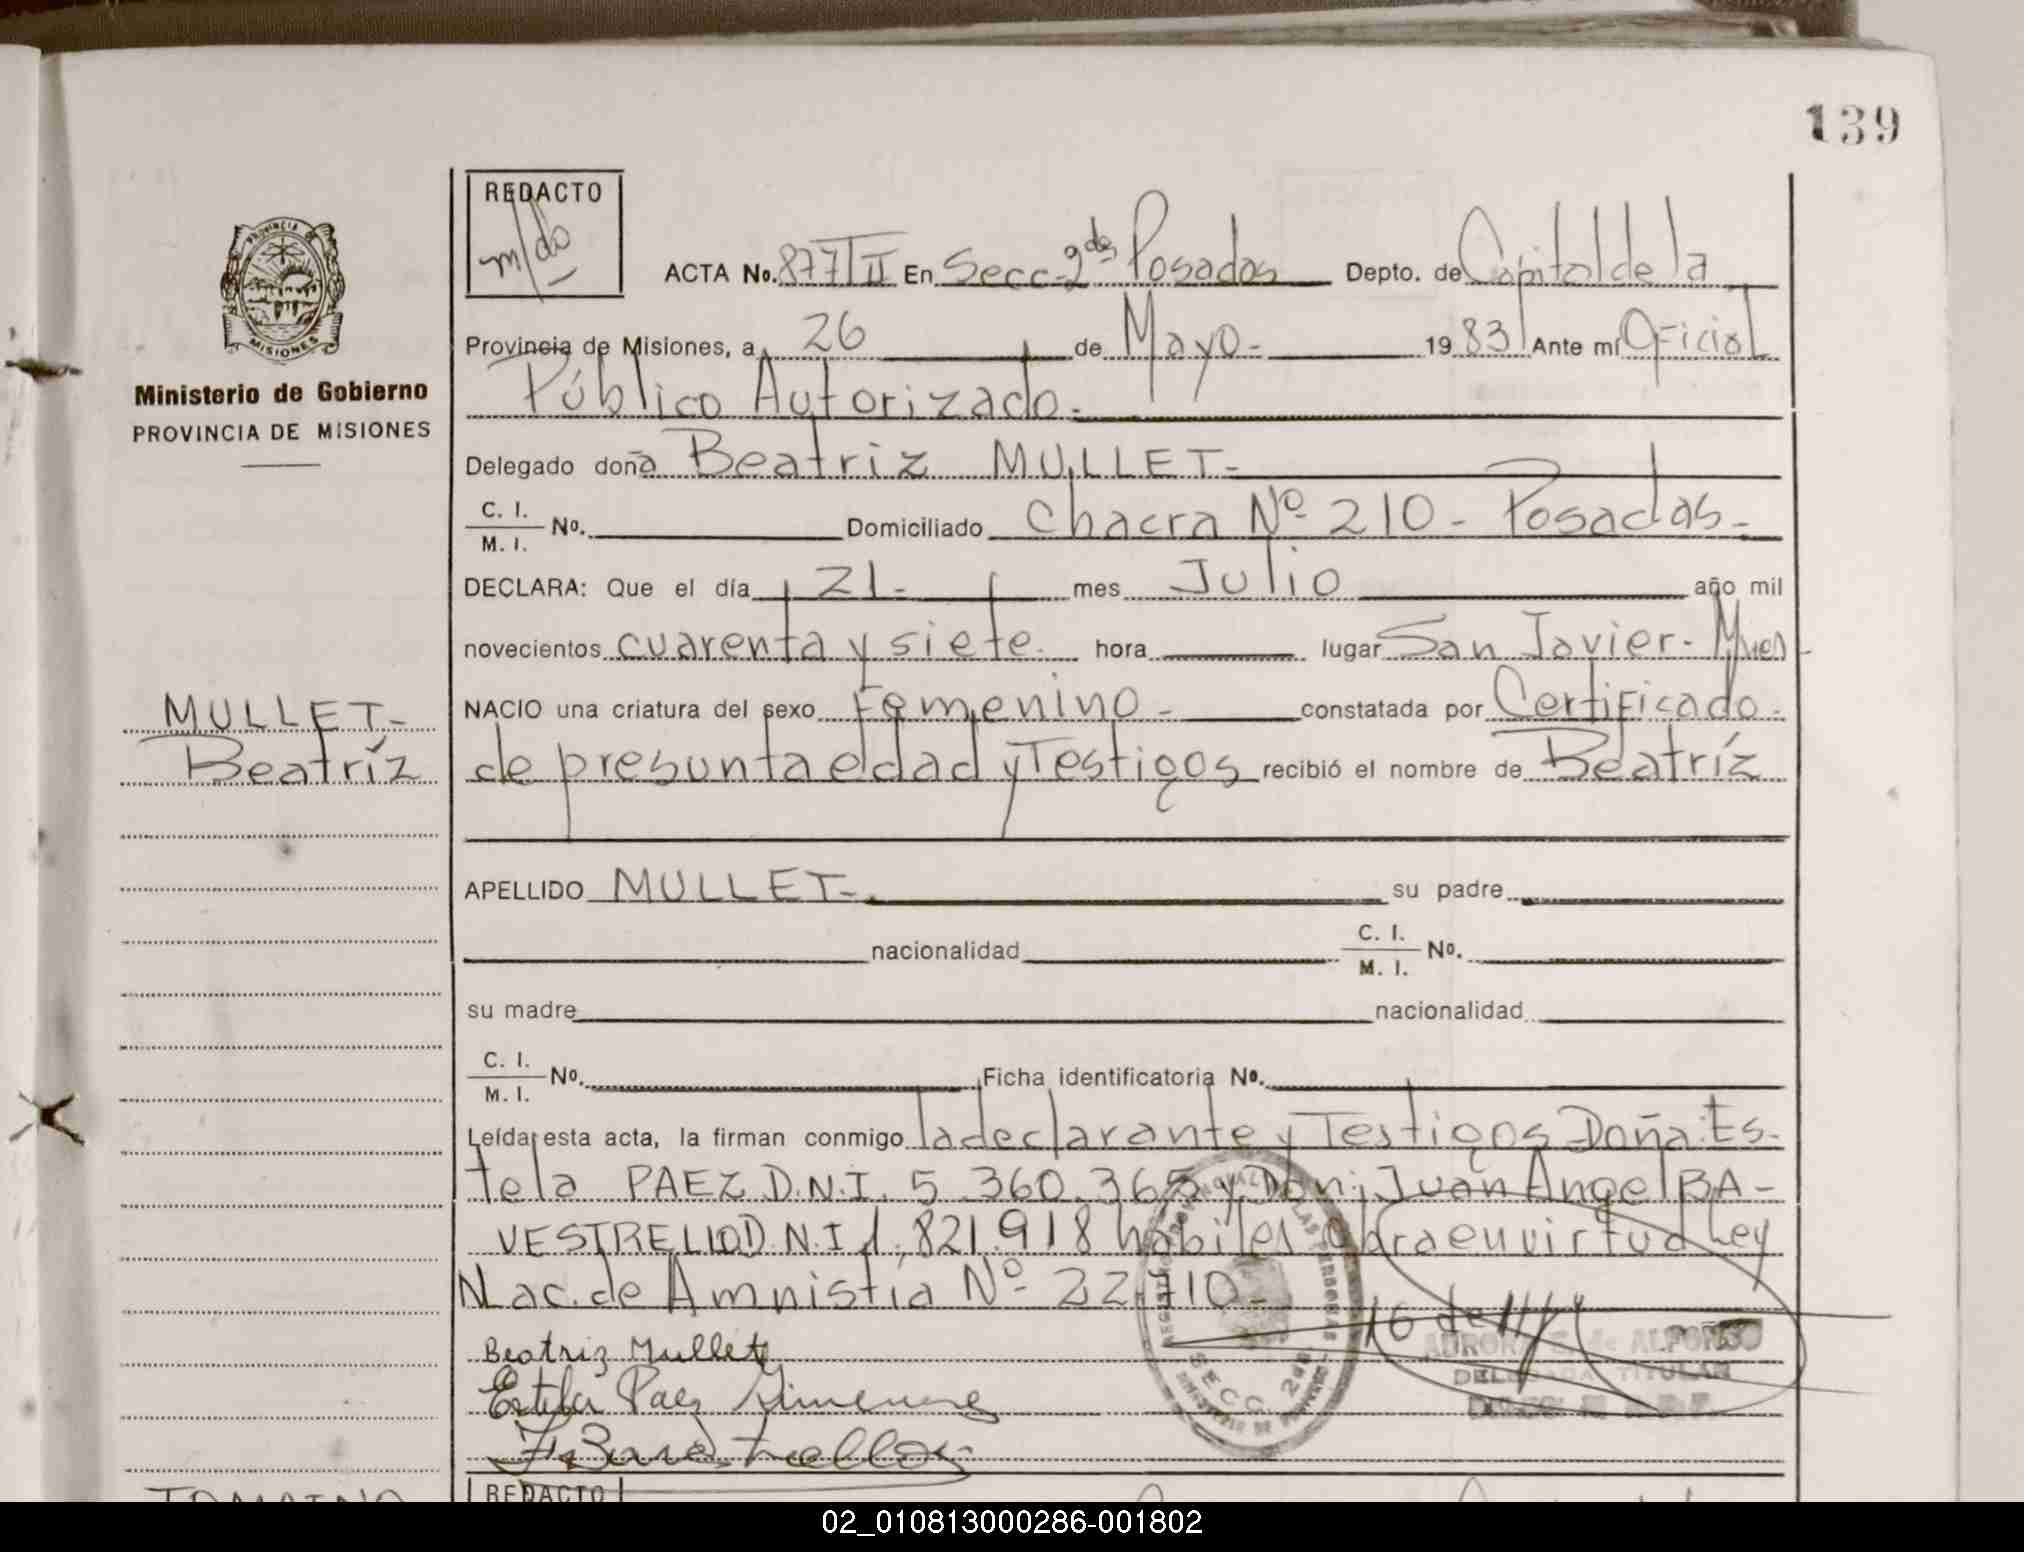 139
REDACTO
m/do
ACTA No. 877/II En Secc-2da Posadas Depto. de Capital de la
Provincia de Misiones, a 26 de Mayo- 1983 Ante mí Oficial
Público Autorizado.-
Delegado doña Beatriz MULLET-
C. I.
M. I. No. Domiciliado Chacra Nº 210- Posadas-
DECLARA: Que el día 21- mes Julio año mil
novecientos cuarenta y siete. hora lugar San Javier- Mnes
NACIO una criatura del sexo Femenino- constatada por Certificado
de presunta edad y Testigos recibió el nombre de Beatríz
APELLIDO MULLET- su padre
nacionalidad C. I.
M. I. No.
su madre nacionalidad
C. I.
M. I. No. Ficha identificatoria No.
Leída esta acta, la firman conmigo la declarante y Testigos Doña: Es-
tela PAEZ D.N.I. 5.360.365 y Don: Juan Angel BA-
VESTRELLO D.N.I 1.821.918 habiles obra en virtud Ley
Nac. de Amnistía Nº 22.710-
Beatriz Mullet
Estela Paez Simenere
J. Bavestrello
PROVINCIA DE
MISIONES
Ministerio de Gobierno
PROVINCIA DE MISIONES
MULLET-
Beatríz
SECC.
AURORA de ALFONSO
DELEGADA TITULAR
REDACTO
02_010813000286-001802